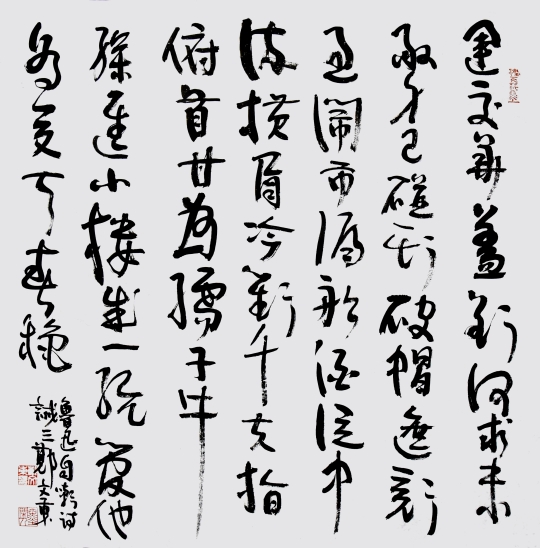 運交華蓋欲何求未
敢身已碰頭破帽遮顏
過鬧市漏船酒泛中
流橫眉冷對千夫指
俯首甘為孺子牛
躲進小樓成一統管他
冬夏与春秋
魯迅自嘲詩
誠三鄭